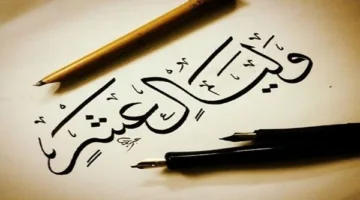 وليالٍ عشرٍ